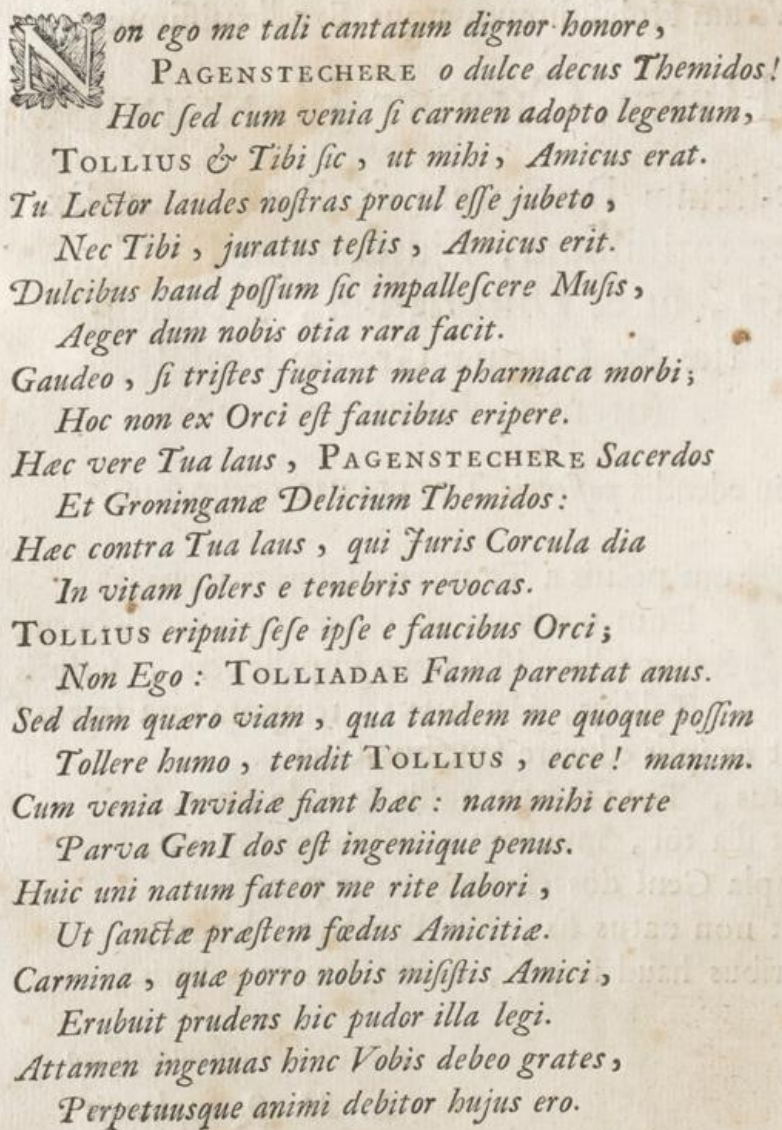 Non ego me tali cantatum dignor honore,
PAGENSTECHERE o dulce decus Themidos!
Hoc ſed cum venia ſi carmen adopto legentum,
TOLLIUS & Tibi ſic, ut mihi, Amicus erat.
Tu Lector laudes noſtras procul eſſe jubeto,
Nec Tibi, juratus teſtis, Amicus erit.
Dulcibus haud poſſum ſic impalleſcere Muſis,
Aeger dum nobis otia rara facit.
Gaudeo, ſi triſtes fugiant mea pharmaca morbi;
Hoc non ex Orci eſt faucibus eripere.
Hæc vere Tua laus, PAGENSTECHERE Sacerdos
Et Groninganæ Delicium Themidos:
Hæc contra Tua laus, qui Juris Corcula dia
In vitam ſolers e tenebris revocas.
TOLLIUS eripuit ſeſe ipſe e faucibus Orci;
Non Ego: TOLLIADAE Fama parentat anus.
Sed dum quæro viam, qua tandem me quoque poſſim
Tollere humo, tendit TOLLIUS, ecce! manum.
Cum venia Invidiæ fiant hæc: nam mihi certe
Parva GenI dos eſt ingeniique penus.
Huic uni natum fateor me rite labori,
Ut ſanctæ præſtem fœdus Amicitiæ.
Carmina, quæ porro nobis miſiſtis Amici,
Erubuit prudens hic pudor illa legi.
Attamen ingenuas hinc Vobis debeo grates,
Perpetuusque animi debitor hujus ero.